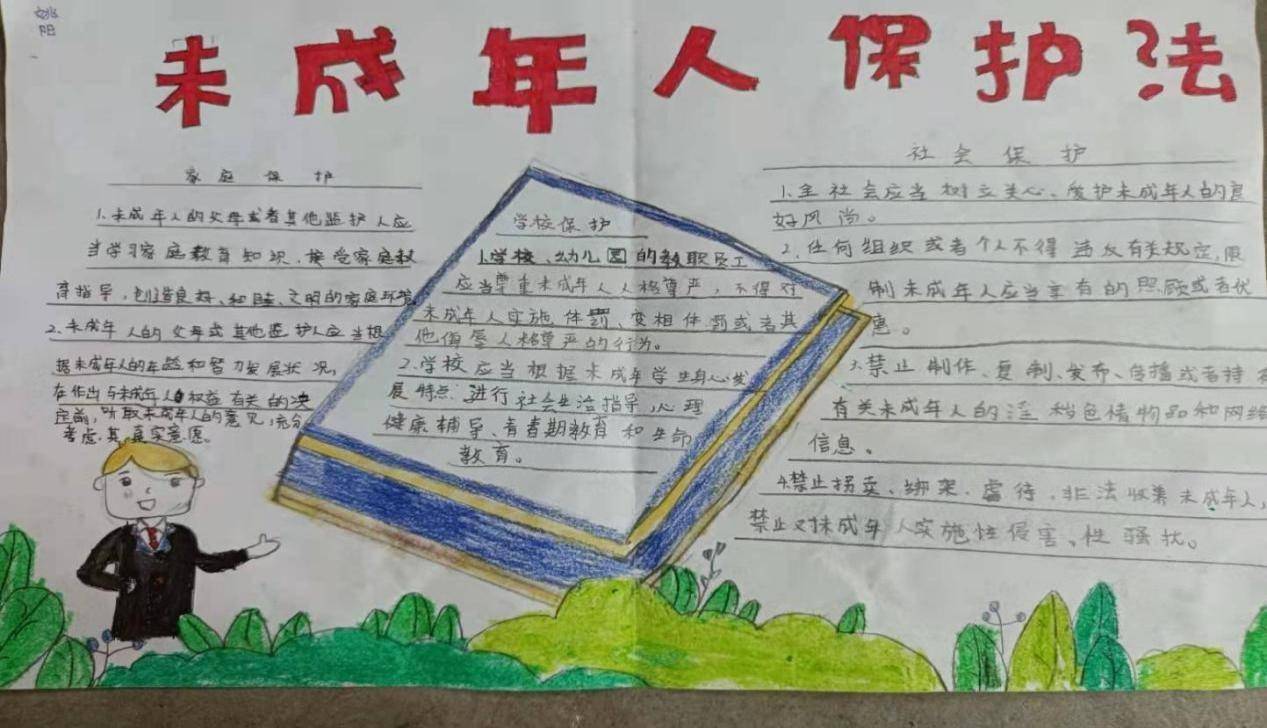 姚
阳
未成年人保护法
家庭保护
1.未成年人的父母或者其他监护人应
当学习家庭教育知识,接受家庭教
育指导,创造良好、和睦、文明的家庭环境
2.未成年人的父母或其他监护人应当根
据未成年人的年龄和智力发展状况,
在作出与未成年人权益有关的决
定前,听取未成年人的意见,充分
考虑其真实意愿。
学校保护
1.学校、幼儿园的教职员工
应当尊重未成年人人格尊严,不得对
未成年人实施体罚、变相体罚或者其
他侮辱人格尊严的行为。
2.学校应当根据未成年学生身心发
展特点进行社会生活指导、心理
健康辅导、青春期教育和生命
教育。
社会保护
1.全社会应当树立关心、爱护未成年人的良
好风尚。
2.任何组织或者个人不得违反有关规定,限
制未成年人应当享有的照顾或者优
惠。
3.禁止制作、复制、发布、传播或者持有
有关未成年人的淫秽色情物品和网络
信息。
4.禁止拐卖、绑架、虐待、非法收养未成年人,
禁止对未成年人实施性侵害、性骚扰。